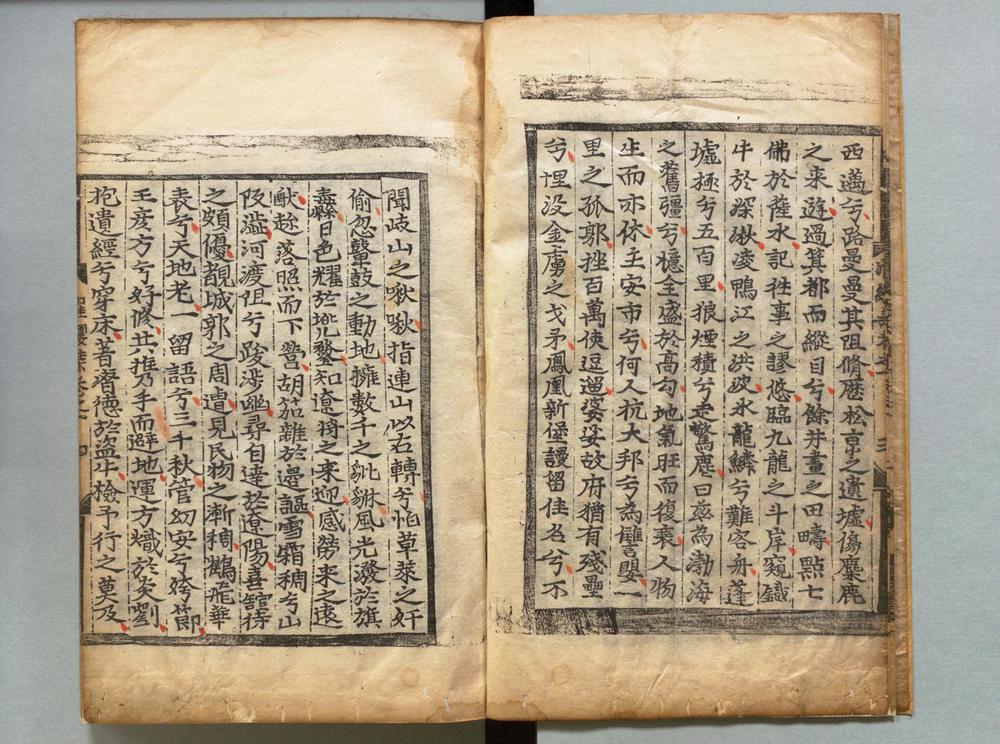 西邁兮路曼曼其阻脩歷松京之遺墟傷麋鹿
之来遊過箕都而縱目兮餘井畫之田疇點七
佛於薩水記徃事之謬悠臨九龍之斗岸窺鐡
牛於深湫凌鴨江之洪波氷龍鱗兮難容舟蓬
墟極兮五百里狼煙積兮老驚塵曰玆為渤海
之舊疆兮憶全盛於高句地氣旺而復衰人物
生而亦休主安市兮何人抗大邦兮為讎嬰一
里之孤郭挫百萬使逗遛婆娑故府猶有殘壘
兮埋没金虜之戈矛鳳凰新堡謾留佳名兮不
聞歧山之啾啾指連山以右轉兮怕草莱之奸
偷忽鼙鼓之動地擁數千之豼貅風光潑於旗
纛日色耀於兠鍪知遼将之来迎感勞来之遠
猷趂落照而下營胡笳雜於邊謳雪霜稠兮山
阪澁河渡阻兮跋渉幽尋自達於遼陽喜舘待
之頗優覩城郭之周遭見民物之漸稠鶴飛華
表兮天地老一留語兮三千秋管幼安兮節
王彦方兮好修共推手而避地運方熾於炎劉
抱遺經兮穿床著濳德於盗牛檢予行之莫及